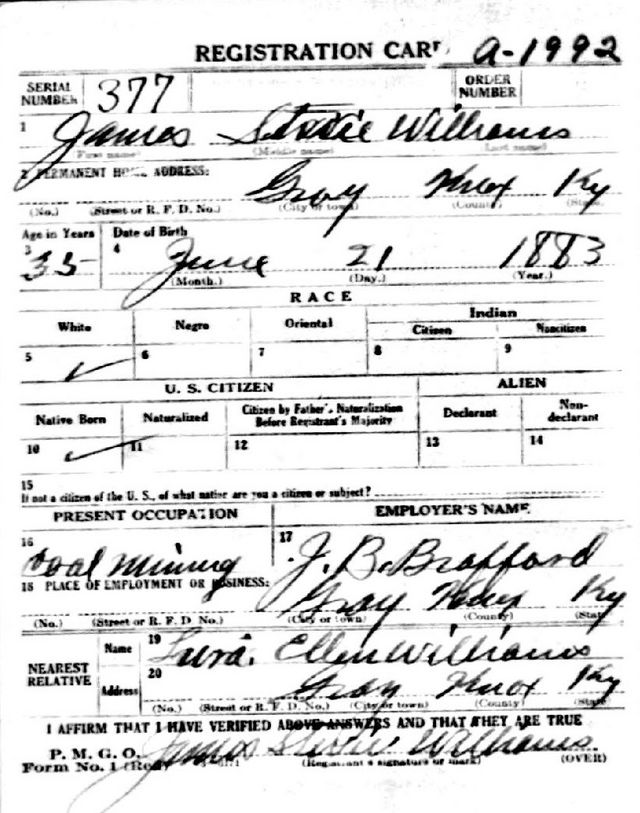 REGISTRATION CARD A-1992
SERIAL NUMBER 377 ORDER NUMBER
1 James Williams
(First name) (Middle name) (Last name)
2 PERMANENT HOME ADDRESS:
Gray Knox Ky
(No.) (Street or R. F. D. No.) (City or town) (County) (State)
Age in Years Date of Birth
3 35 4 June 21 1883
(Month.) (Day.) (Year.)
RACE
White Negro Oriental Indian
Citizen Noncitizen
5 ✓ 6 7 8 9
U. S. CITIZEN ALIEN
Native Born Naturalized Citizen by Father's Naturalization Before Registrant's Majority Declarant Non-declarant
10 ✓ 11 12 13 14
15
If not a citizen of the U. S., of what nation are you a citizen or subject?
PRESENT OCCUPATION EMPLOYER'S NAME
16 Coal Mining 17 J. B. Brafford
18 PLACE OF EMPLOYMENT OR BUSINESS:
Gray Knox Ky
(No.) (Street or R. F. D. No.) (City or town) (County) (State)
NEAREST RELATIVE Name 19 Ellen Williams
Address 20 Gray Knox Ky
(No.) (Street or R. F. D. No.) (City or town) (County) (State)
I AFFIRM THAT I HAVE VERIFIED ABOVE ANSWERS AND THAT THEY ARE TRUE
P. M. G. O.
Form No. 1 (Red) James Williams
(Registrant's signature or mark) (OVER)